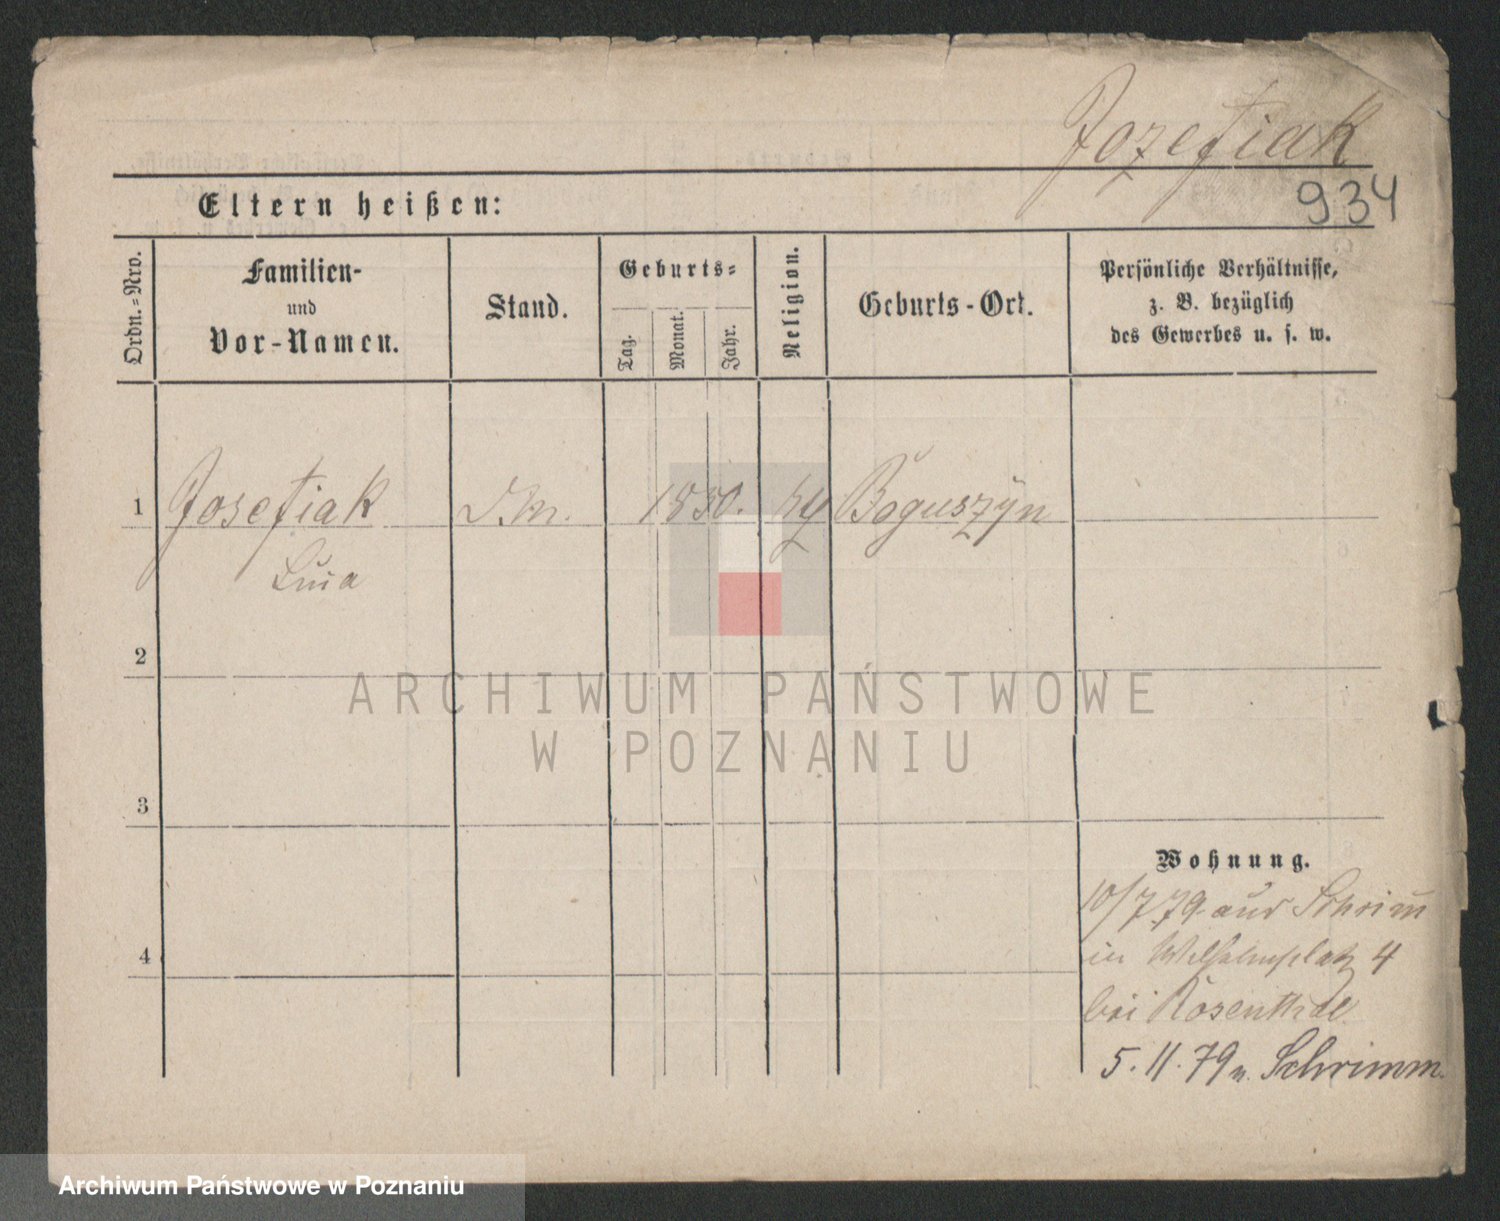 Jozefiak
934
Eltern heißen:
Ordn.=Nro.
Familien-
und
Vor-Namen.
Stand.
Geburts=
Tag.
Monat.
Jahr.
Religion.
Geburts-Ort.
Persönliche Verhältnisse,
z. B. bezüglich
des Gewerbes u. s. w.
1 Josefiak 1850. Boguszyn
2
3
4
Wohnung.
10/7 79. aus Schrim
in Wilhelmsplatz 4
bei Rosenthal
5. 11. 79 n. Schrimm.
ARCHIWUM PAŃSTWOWE
W POZNANIU
Archiwum Państwowe w Poznaniu